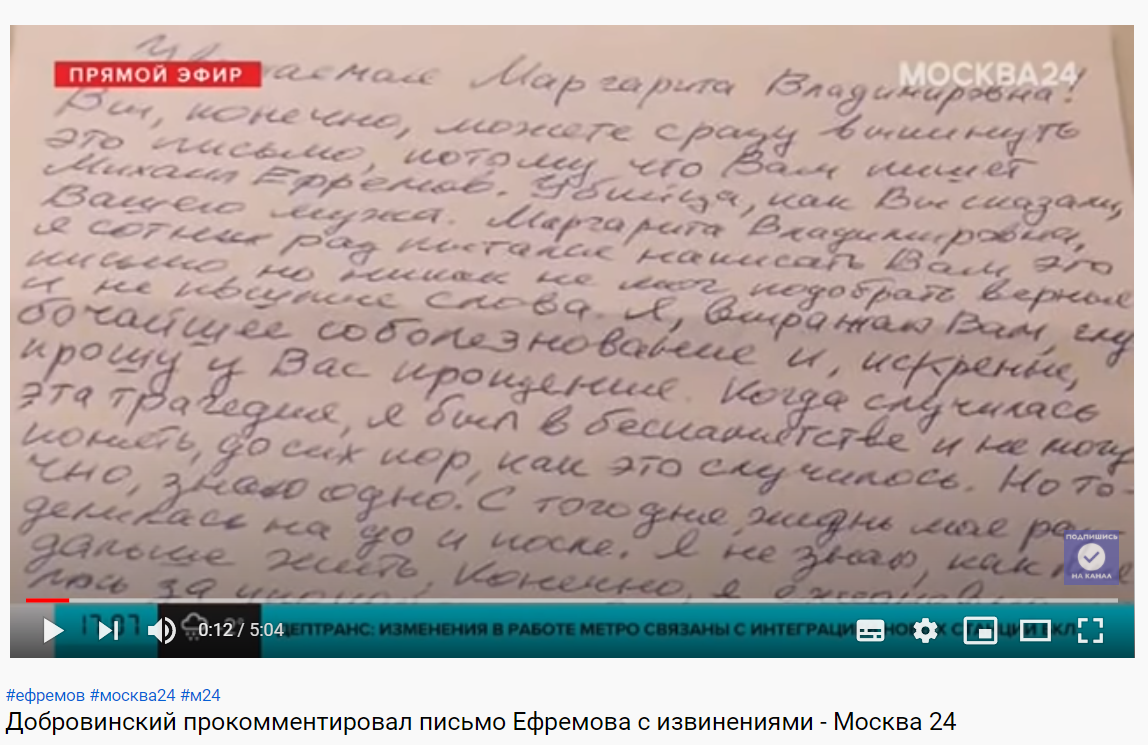 ПРЯМОЙ ЭФИР
МОСКВА24
Уважаемая Маргарита Владимировна!
Вы, конечно, можете сразу выкинуть
это письмо, потому что Вам пишет
Михаил Ефремов. Убийца, как Вы сказали,
Вашего мужа. Маргарита Владимировна,
я сотни раз пытался написать Вам это
письмо, но никак не мог подобрать верные
и не пышные слова. Я, выражаю Вам, глу
бочайшее соболезнование и, искренне,
прошу у Вас прощение. Когда случилась
эта трагедия, я был в беспамятстве и не могу
понять, до сих пор, как это случилось. Но то-
чно, знаю одно. С того дня, жизнь моя ра
делилась на до и после. Я не знаю, как
дальше жить. Конечно, я
за
ПОДПИШИСЬ
НА КАНАЛ
17:07
ДЕПТРАНС: ИЗМЕНЕНИЯ В РАБОТЕ МЕТРО СВЯЗАНЫ С ИНТЕГРАЦИ
0:12 / 5:04
#ефремов #москва24 #м24
Добровинский прокомментировал письмо Ефремова с извинениями - Москва 24